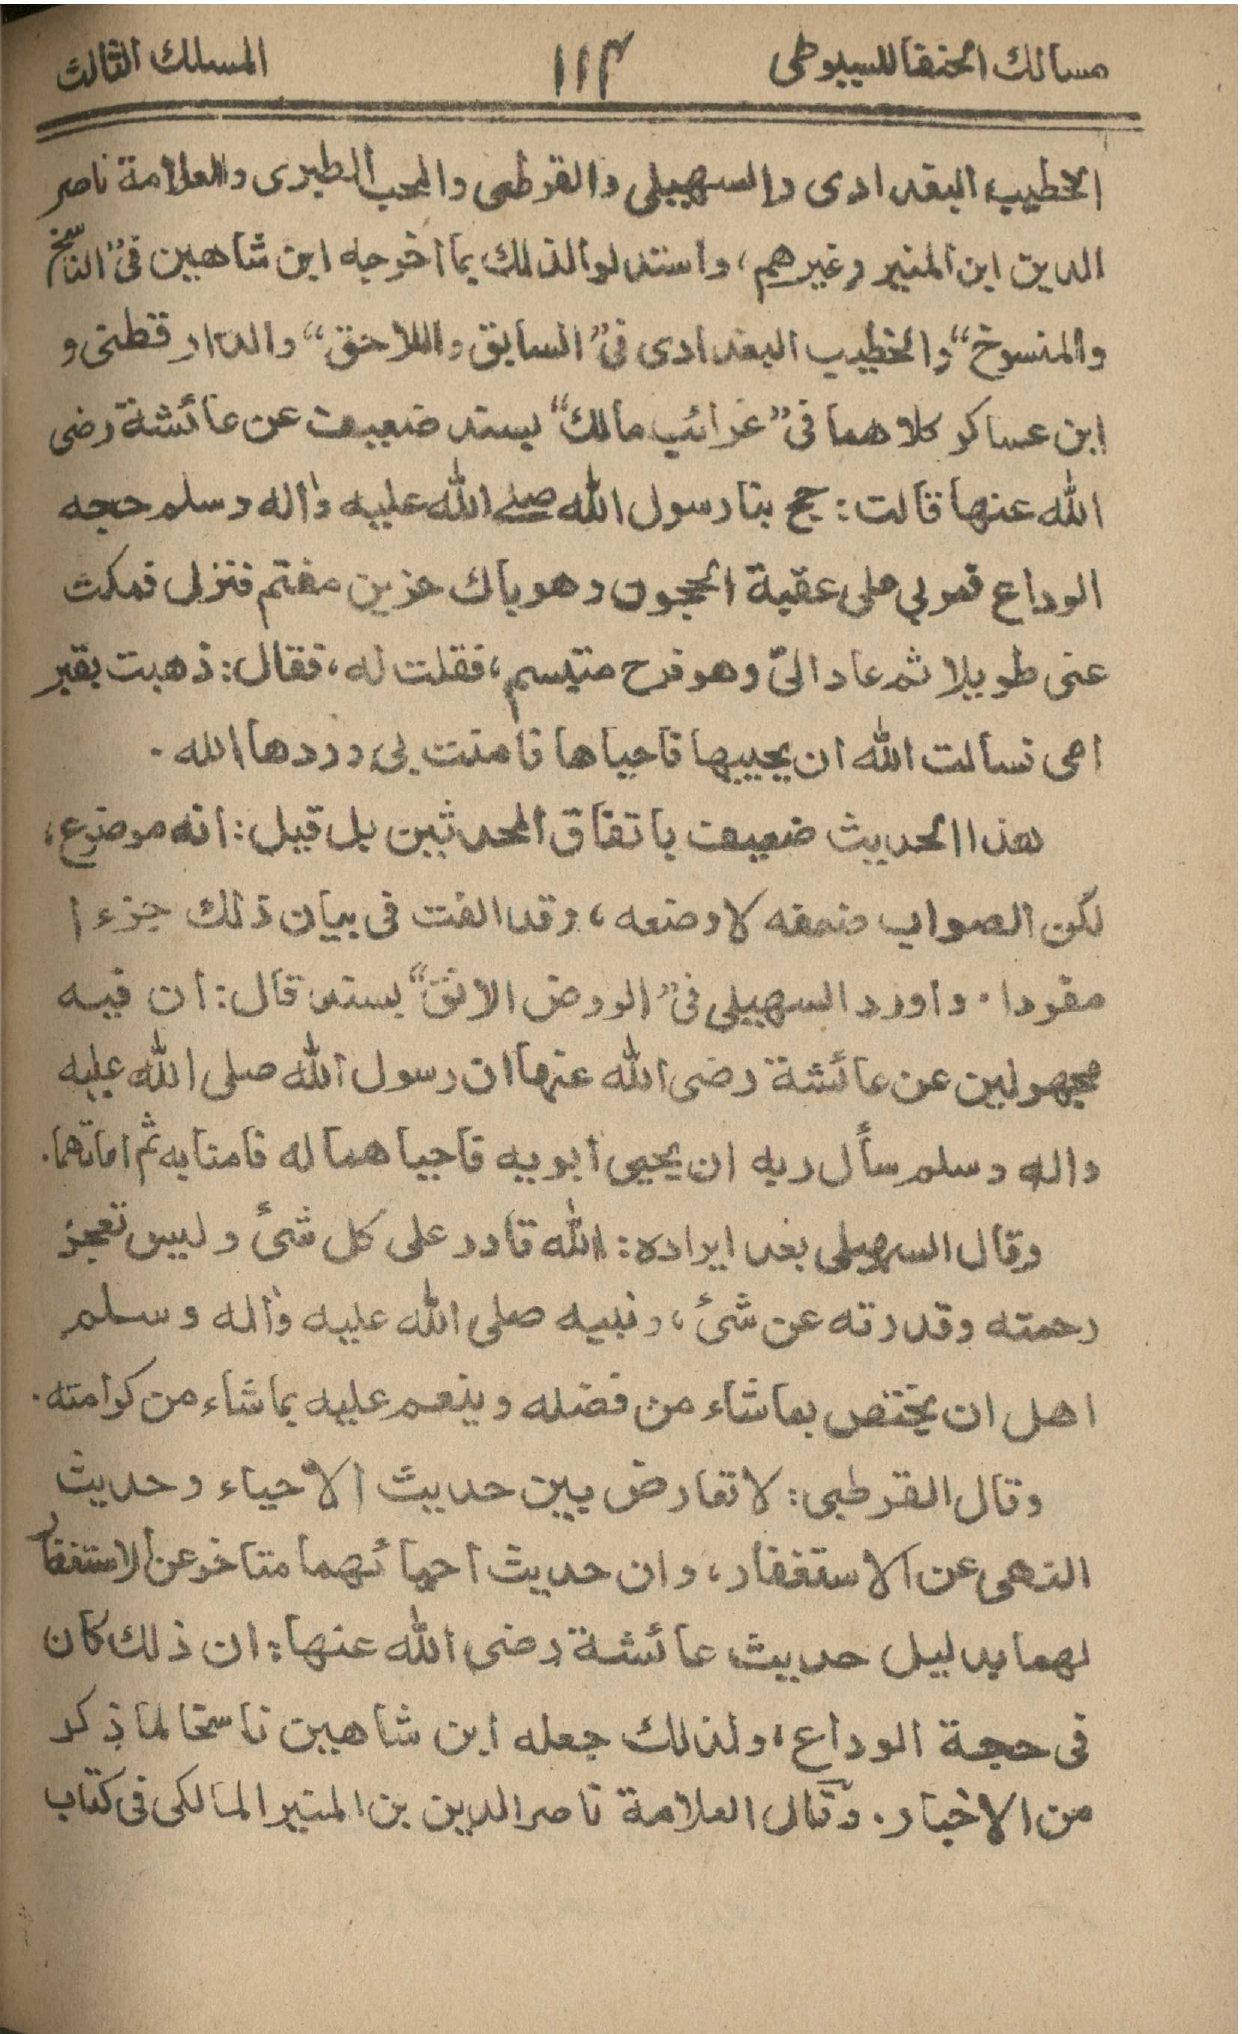 مسالك الحنفا للسيوطى ١١٣ المسلك الثالث
الخطيب البغدادى والسهيلى والقرطبى والمحب الطبرى والعلامة ناصر
الدين ابن المنير وغيرهم، واستدلوا لذلك بما اخرجه ابن شاهين فى ”الناسخ
والمنسوخ“ والخطيب البغدادى فى ”السابق واللاحق“ والدارقطنى و
ابن عساكر كلاهما فى ”غرائب مالك“ بسند ضعيف عن عائشة رضى
الله عنها قالت: حج بنا رسول الله صلے الله عليه واٰله وسلم حجه
الوداع فمر بى على عقبة الحجون وهو باك حزين مغتم فنزل فمكث
عنى طويلا ثم عاد الىّ وهو فرح متبسم، فقلت له، فقال: ذهبت بقبر
امى فسالت الله ان يحييها فاحياها فامنت بى وردها الله.
هذا الحديث ضعيف باتفاق المحدثين بل قيل: انه موضوع،
لكن الصواب ضعفه لا وضعه، وقد الفت فى بيان ذلك جزءا
مفردا. واورد السهيلى فى ”الروض الانف“ بسند قال: ان فيه
مجهولين عن عائشة رضى الله عنها ان رسول الله صلى الله عليه
واله وسلم سأل ربه ان يحيى ابويه فاحياهما له فامنا به ثم اماتهما.
وقال السهيلى بعد ايراده: الله قادر على كل شئ وليس تعجز
رحمته وقدرته عن شئ، ونبيه صلى الله عليه واٰله وسلم
اهل ان يختص بما شاء من فضله وينعم عليه بما شاء من كرامته.
وقال القرطبى: لا تعارض بين حديث الاحياء وحديث
النهى عن الاستغفار، وان حديث احيائهما متاخر عن الاستغفار
لهما بدليل حديث عائشة رضى الله عنها: ان ذلك كان
فى حجة الوداع، ولذلك جعله ابن شاهين ناسخا لما ذكر
من الاخبار. وقال العلامة ناصر الدين بن المنير المالكى فى كتاب